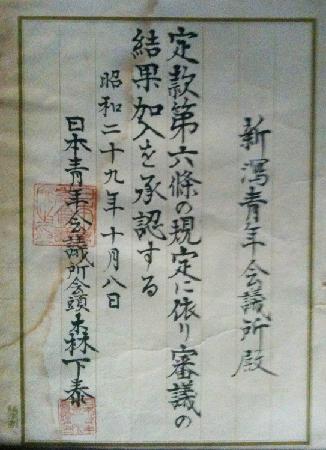 新潟青年会議所殿
定款第六條の規定に依り審議の
結果加入を承認する
昭和二十九年十月八日
日本青年会議所会頭森下泰